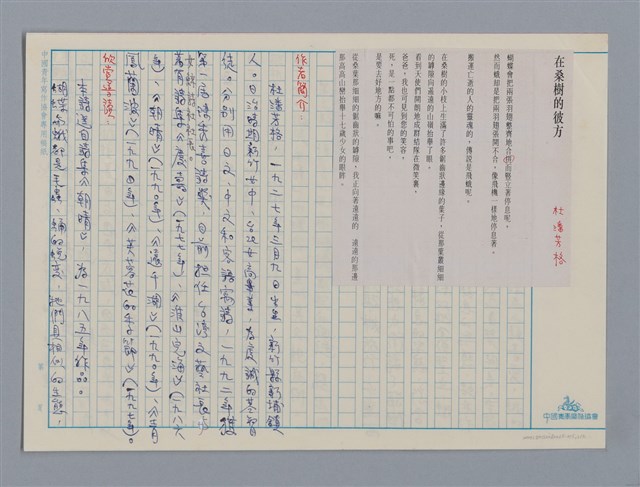 在桑樹的彼方
杜潘芳格
蝴蝶會把兩張羽翅整齊地合閉而豎立著停息呢。
然而蛾却是把兩羽翅張開不合，像飛機一樣地停息著。
搬運亡逝的人的靈魂的，傳說是飛蛾呢。
在桑樹的小枝上生滿了許多鋸齒狀邊緣的葉子，從那葉叢細細
的縫隙向遙遠的山嶺抬舉了眼，
看到天使們開朗地成群結隊在微笑裏，
爸爸，我也可見到您的笑容，
死，是一點都不可怕的事吧，
是要去好地方的嘛。
從桑葉那細細的鋸齒狀的縫隙，我正向著遠遠的　遠遠的那邊
那高高山巒抬舉十七歲少女的眼眸。
作者簡介：
杜潘芳格，一九二七年三月九日生，新竹縣新埔鎮
人。日治時期新竹女中、台北女高畢業，為虔誠的基督
徒。分別用日文、中文和客語寫詩，一九九二年獲
第一屆陳秀喜詩獎，目前担任台灣文藝社長、
女鯨詩社社長。
著有詩集《慶壽》（一九七七年）、《淮山完海》（一九八六
年）、《朝晴》（一九九〇年）、《遠千湖》（一九九〇年）、《青
鳳蘭波》（一九九四年）、《芙蓉花的季節》（一九九七年）。
欣賞導讀：
本詩選自詩集《朝晴》，為一九八五年作品。
蝴蝶和蛾都是毛蟲、蛹的蛻変，牠們具相似的生態，
中國青年寫作協會